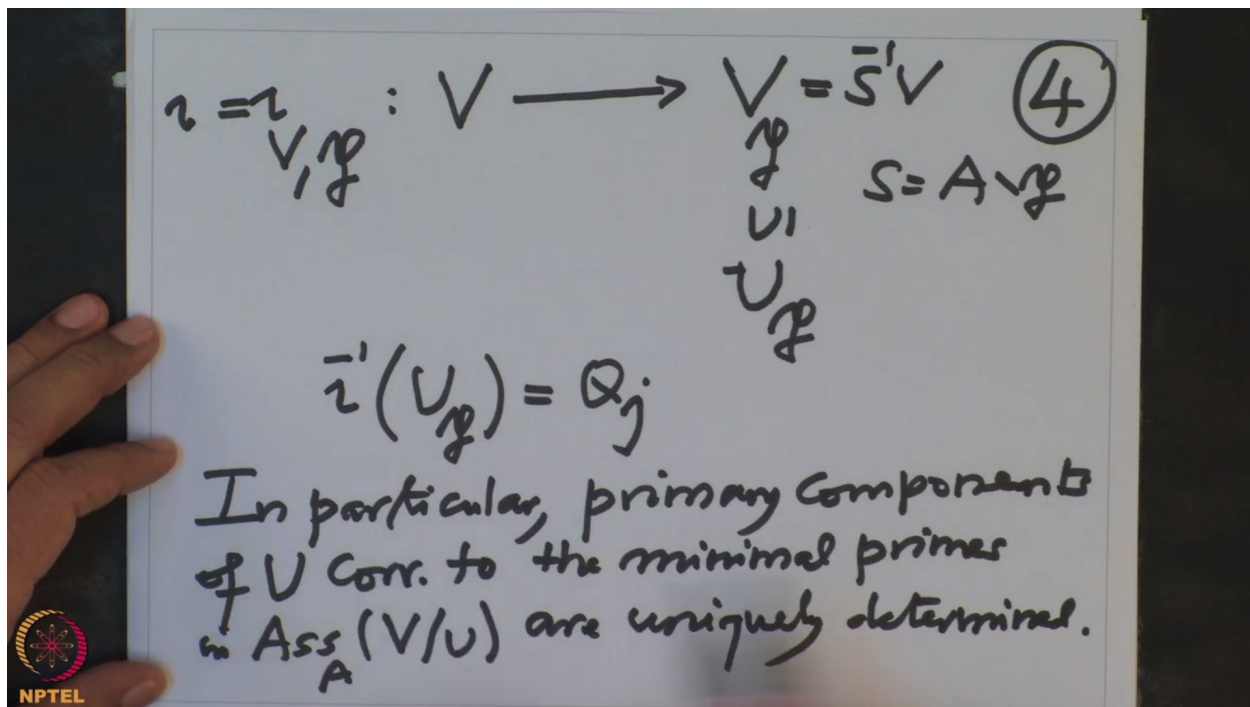 ι = ι_{V,𝔭} : V ⟶ V_𝔭 = S⁻¹V ④
S = A∖𝔭
∪|
U_𝔭
ι⁻¹(U_𝔭) = Q_j
In particular, primary components
of U Corr. to the minimal primes
in Ass_A (V/U) are uniquely determined.
NPTEL